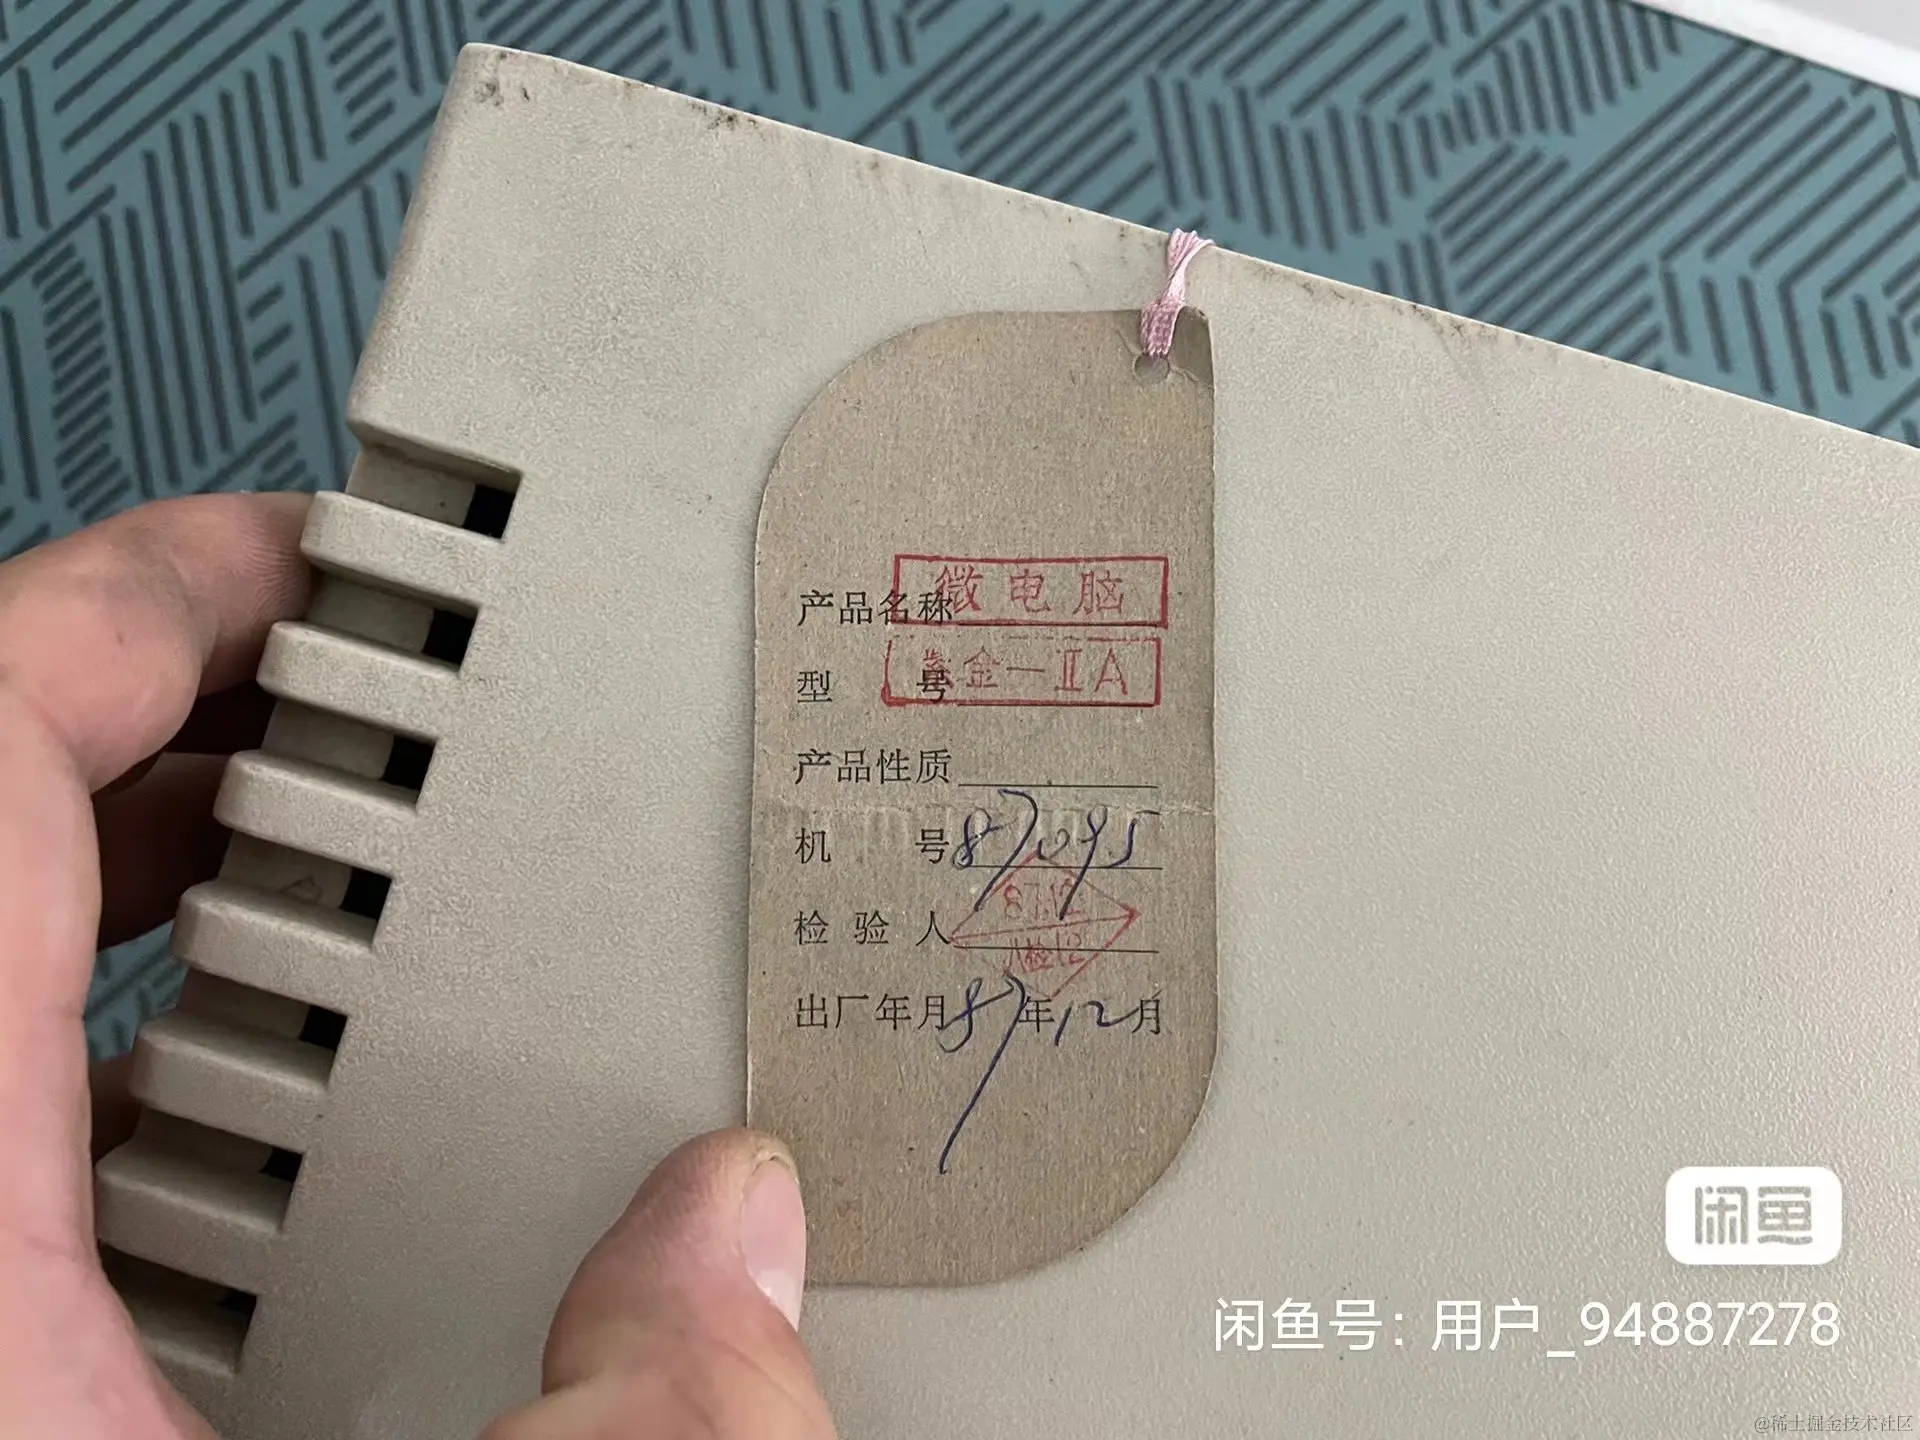 产品名称 微电脑
型 号 紫金-ⅡA
产品性质
机 号 87095
检 验 人 87.12
检12
出厂年月 87年12月
闲鱼
闲鱼号：用户_94887278
@稀土掘金技术社区